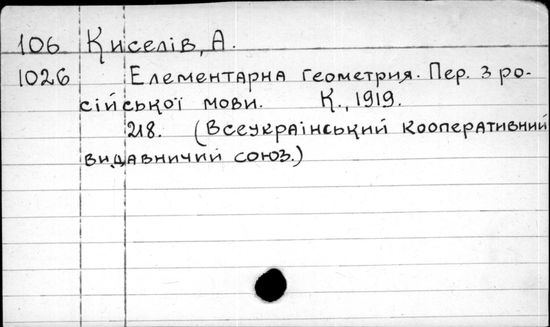 106 Киселів, А.
1026 Елементарна геометрия. Пер. з ро-
сійської мови. К., 1919.
218. (Всеукраінський кооперативний
видавничий союз.)